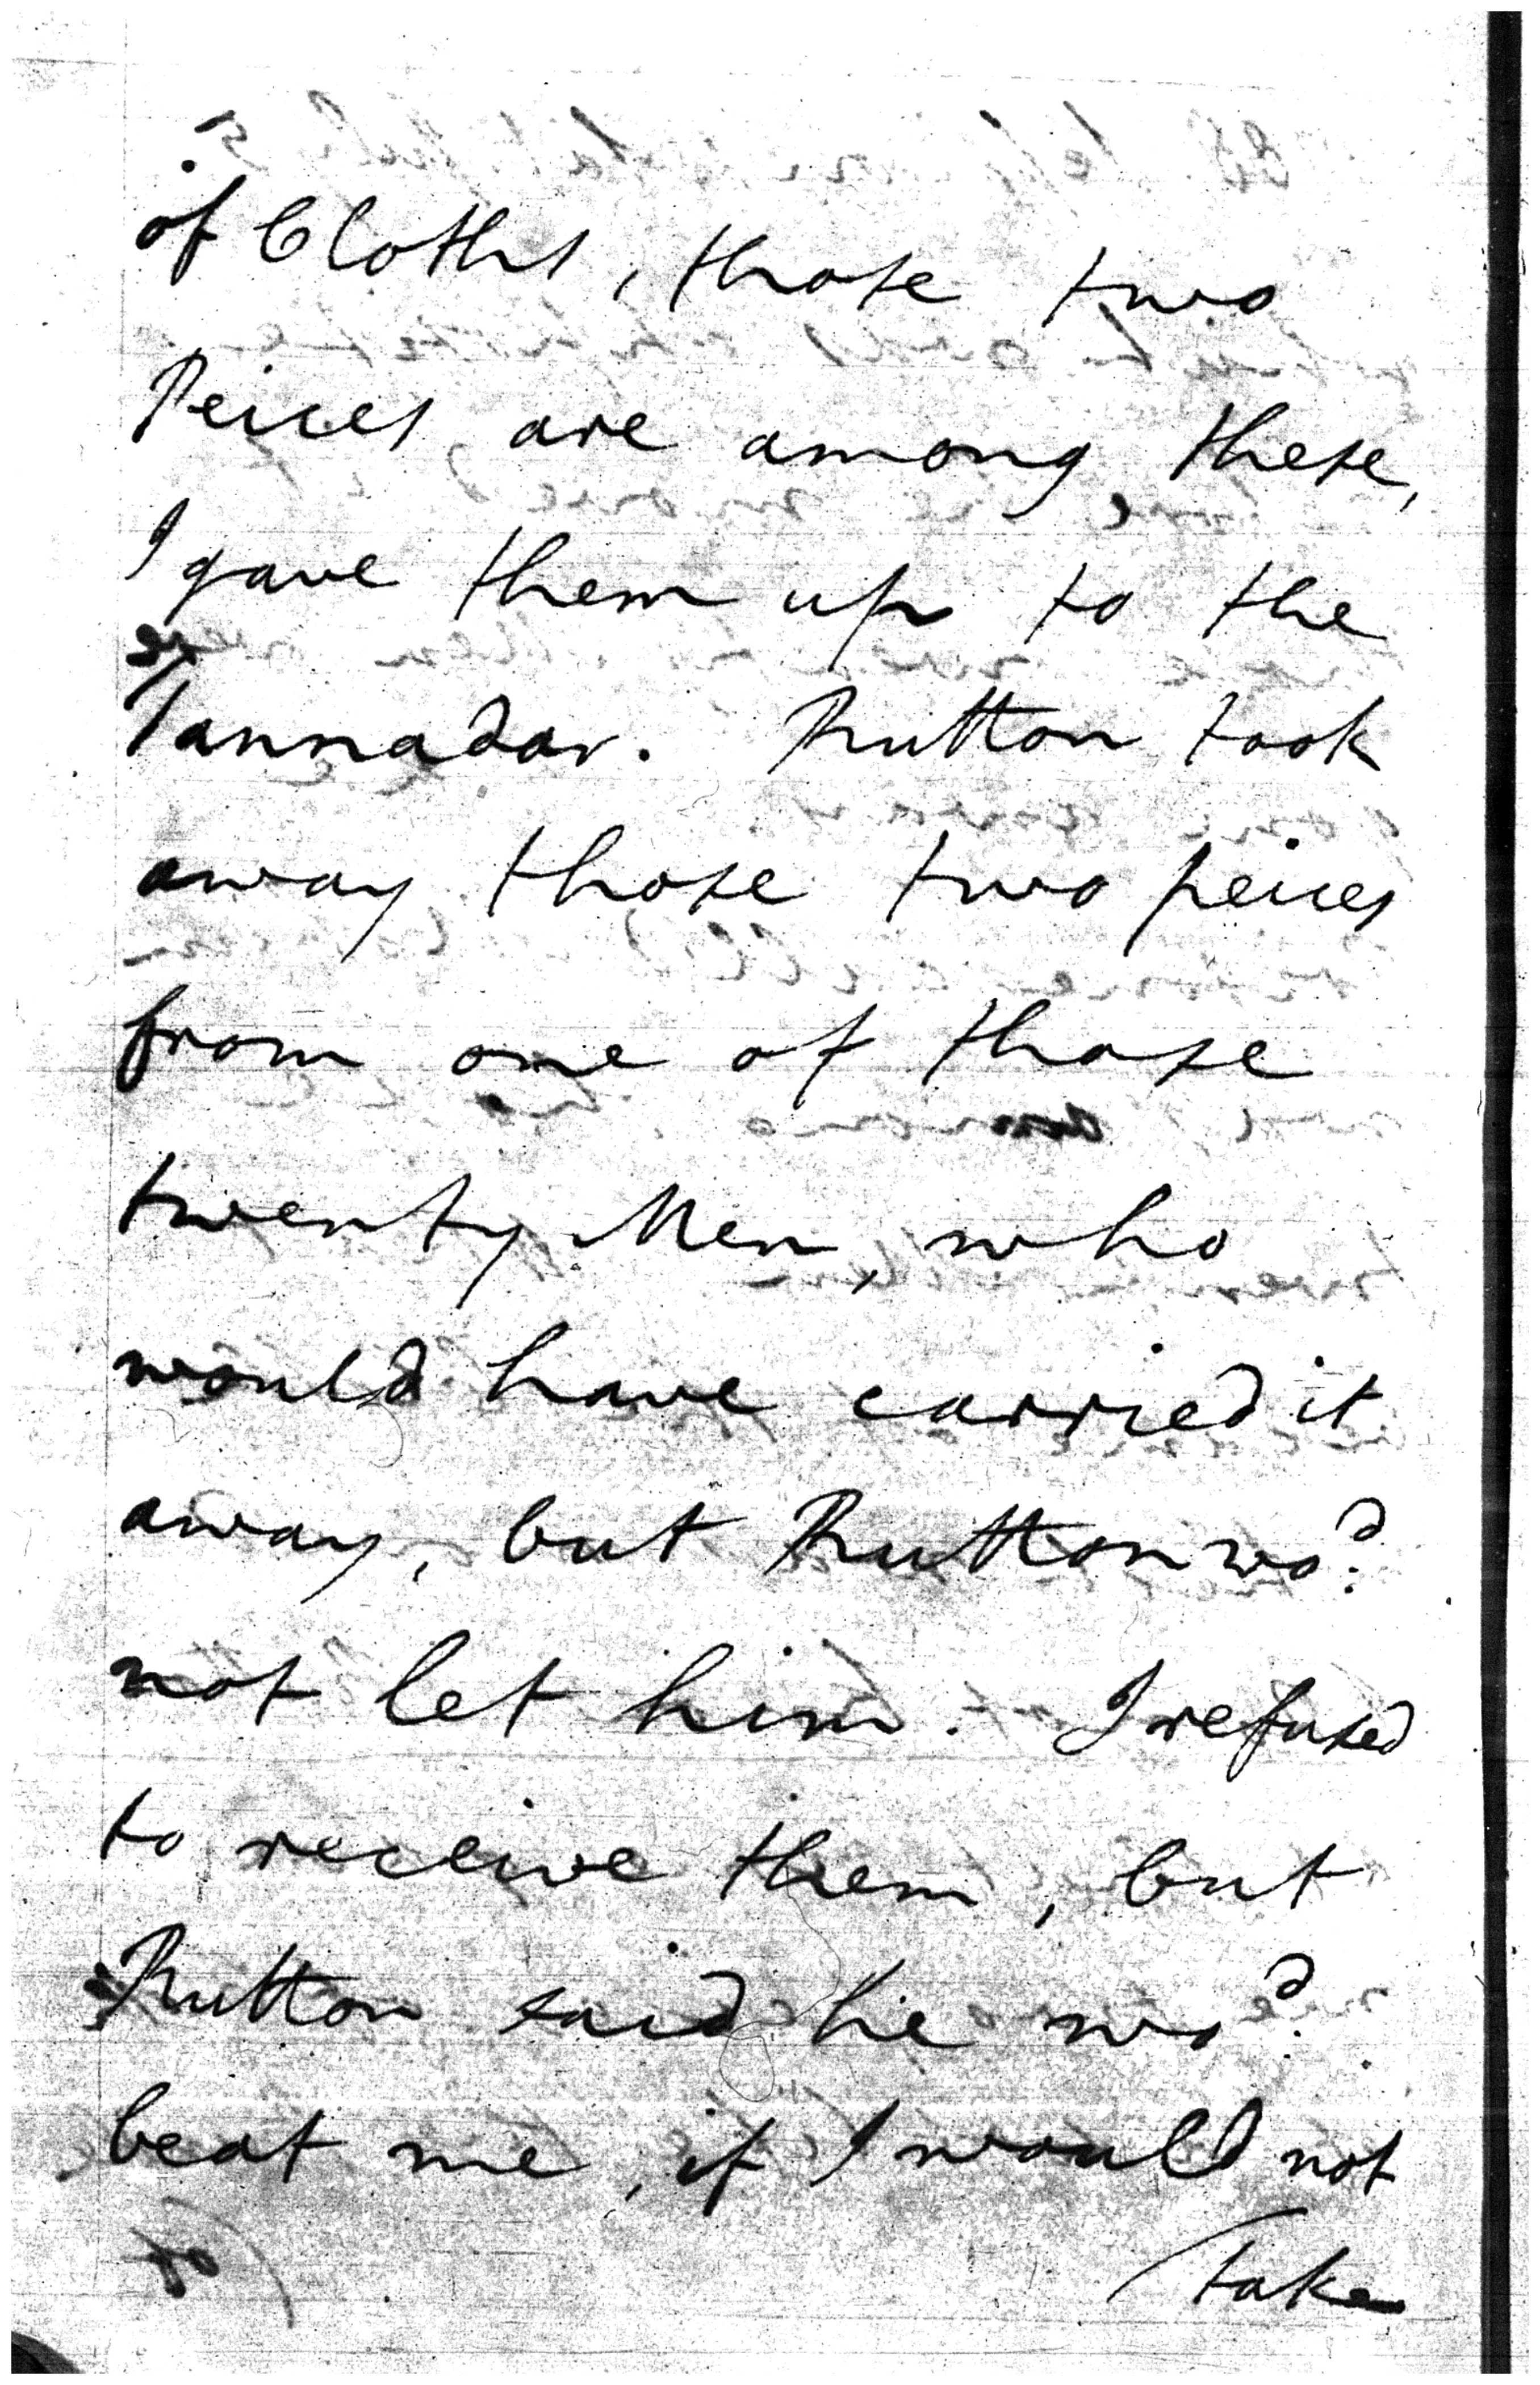 of Cloths, those two
Peices are among these,
I gave them up to the
Tannadar. Rutton took
away those two peices
from one of those
twenty Men, who
would have carried it
away, but Rutton wo:d
not let him. I refused
to receive them, but
Rutton said he wo:d
beat me, if I would not
take